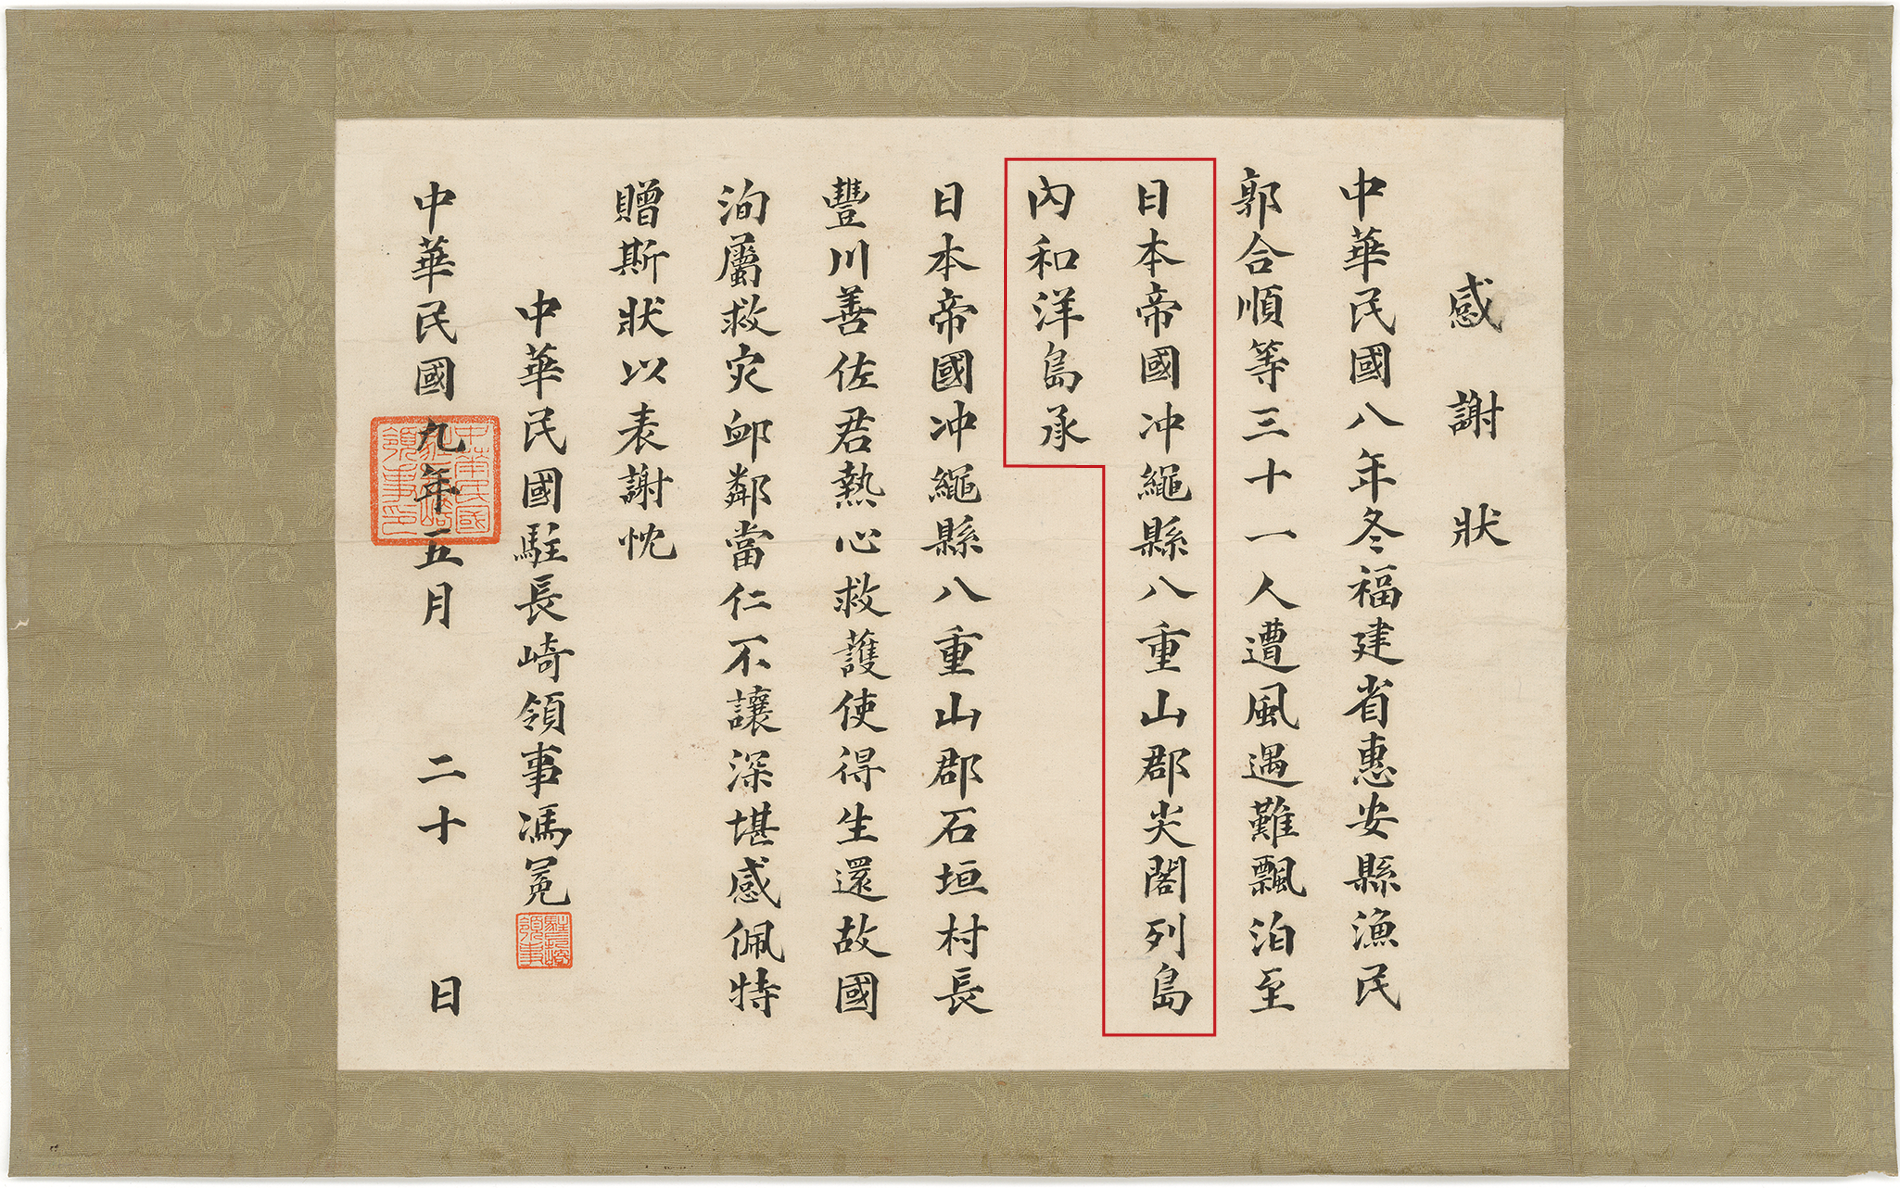 感謝狀
中華民國八年冬福建省惠安縣漁民
郭合順等三十一人遭風遇難飄泊至
日本帝國冲繩縣八重山郡尖閣列島
內和洋島承
日本帝國冲繩縣八重山郡石垣村長
豐川善佐君熱心救護使得生還故國
洵屬救灾卹鄰當仁不讓深堪感佩特
贈斯狀以表謝忱
中華民國駐長崎領事馮冕
駐長崎領事
中華民國九年五月二十日
中華民國駐長崎領事印